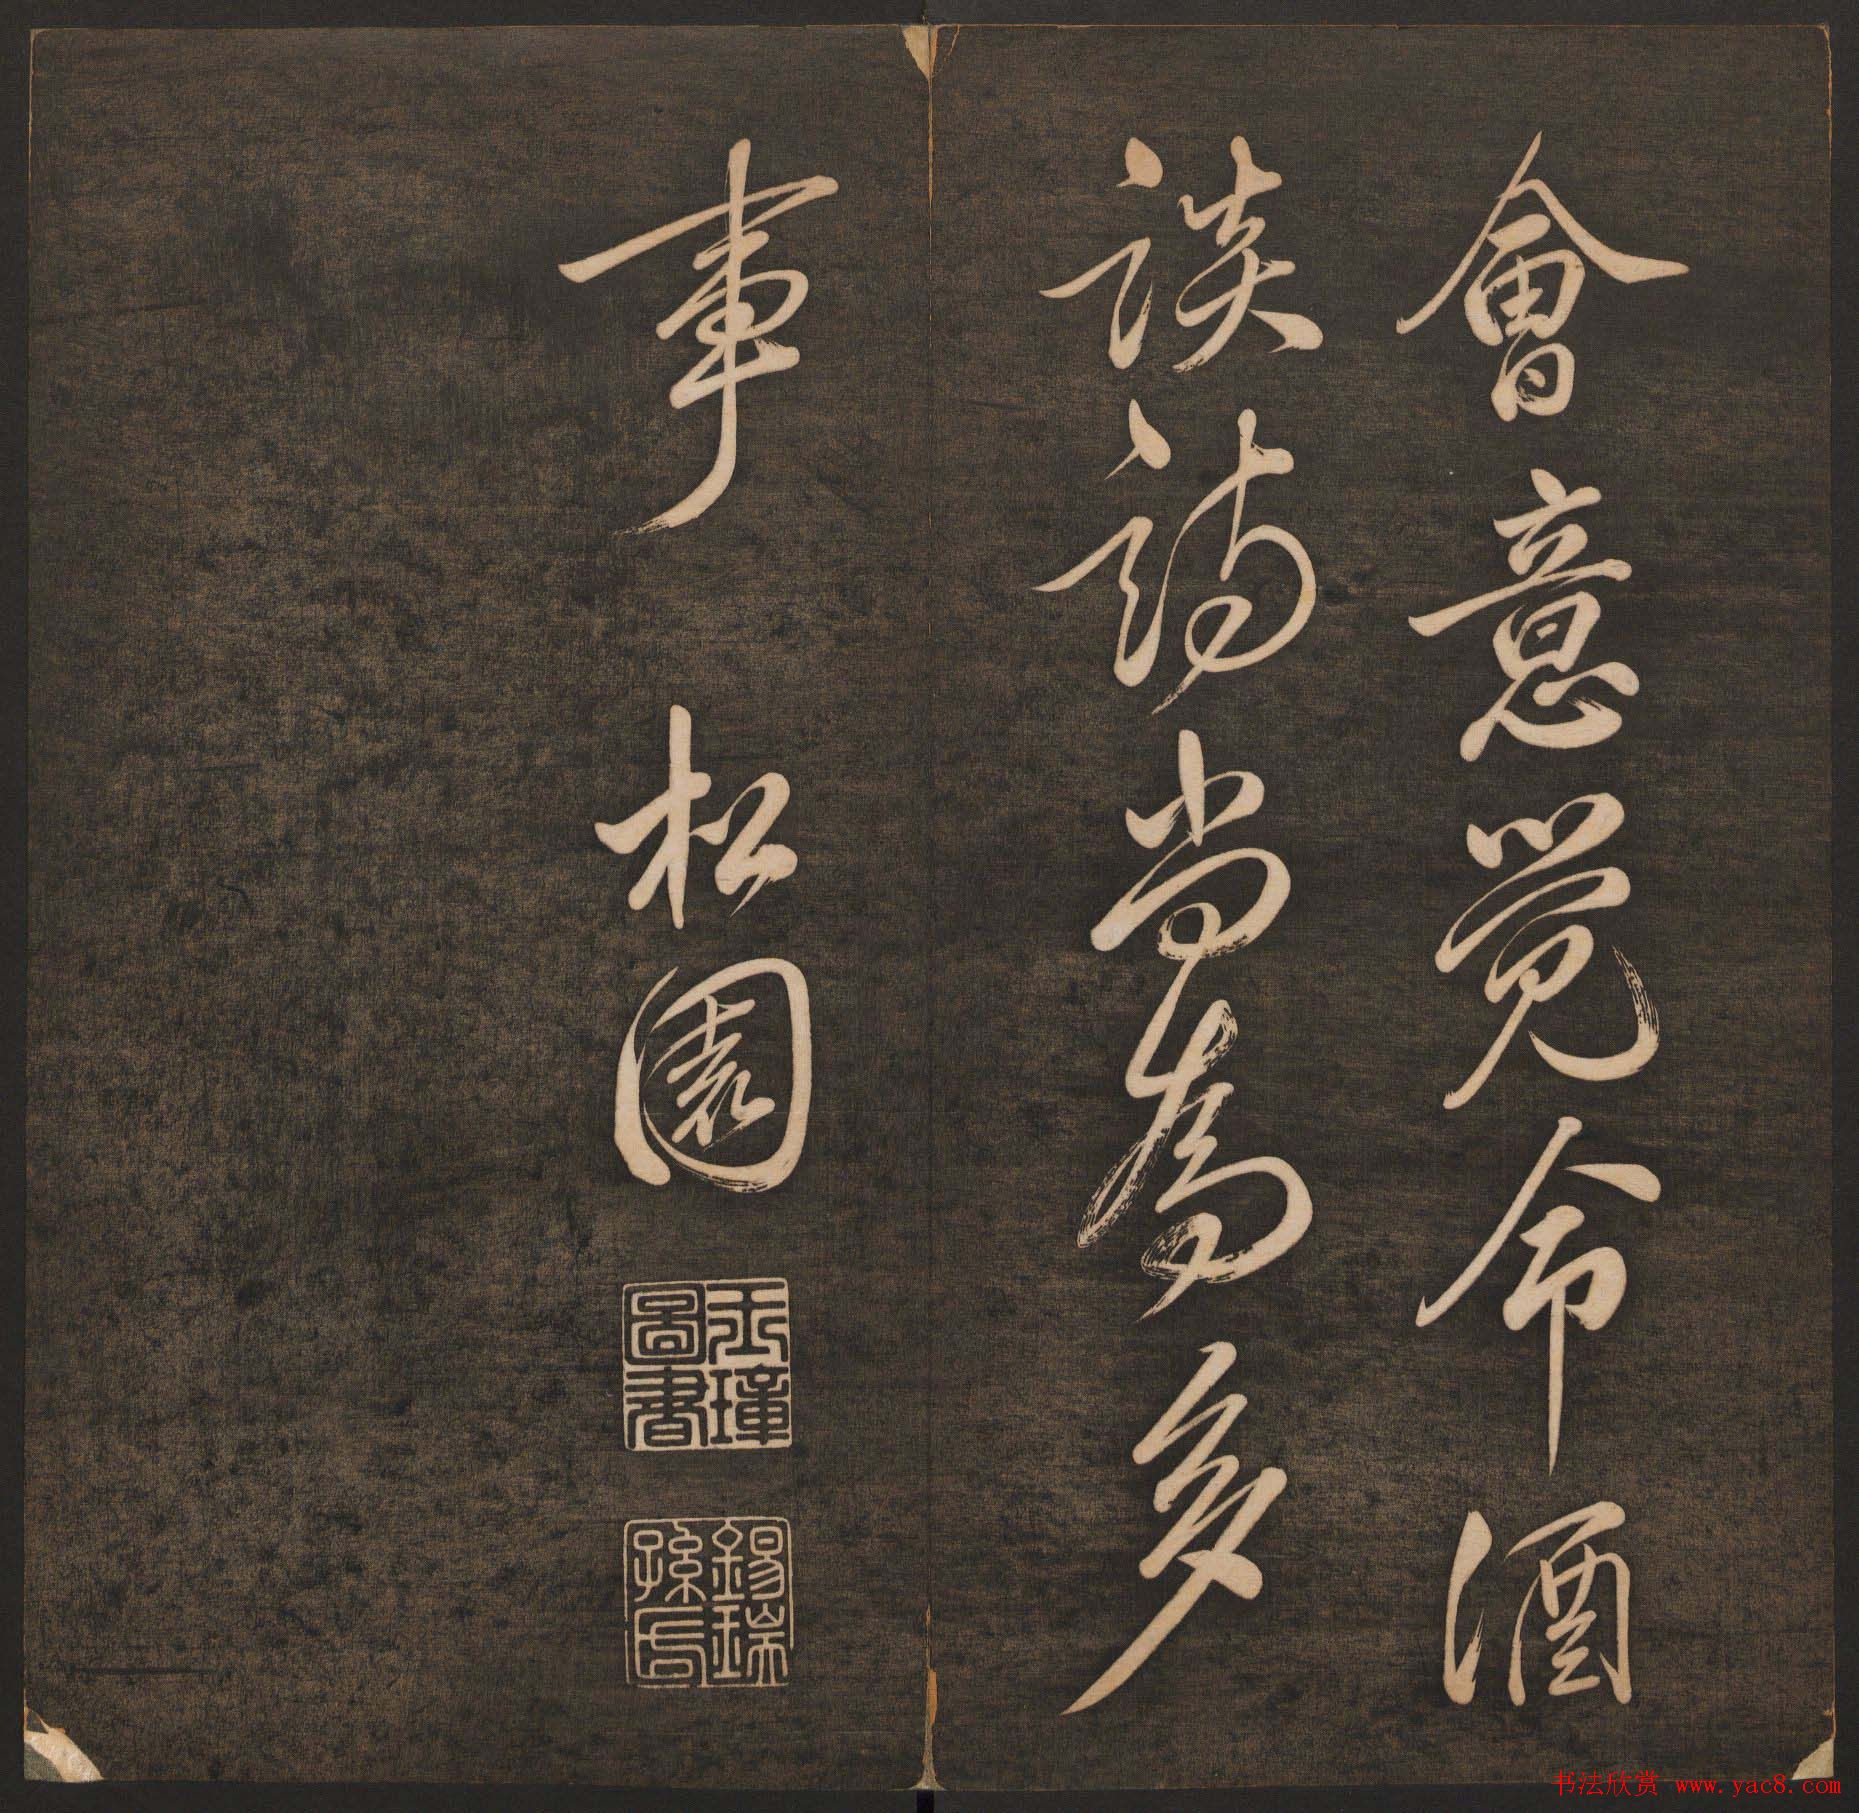 會意覺命酒
談詩尚為多
事 松園
璋圖書
錫孫氏
书法欣赏 www.yac8.com